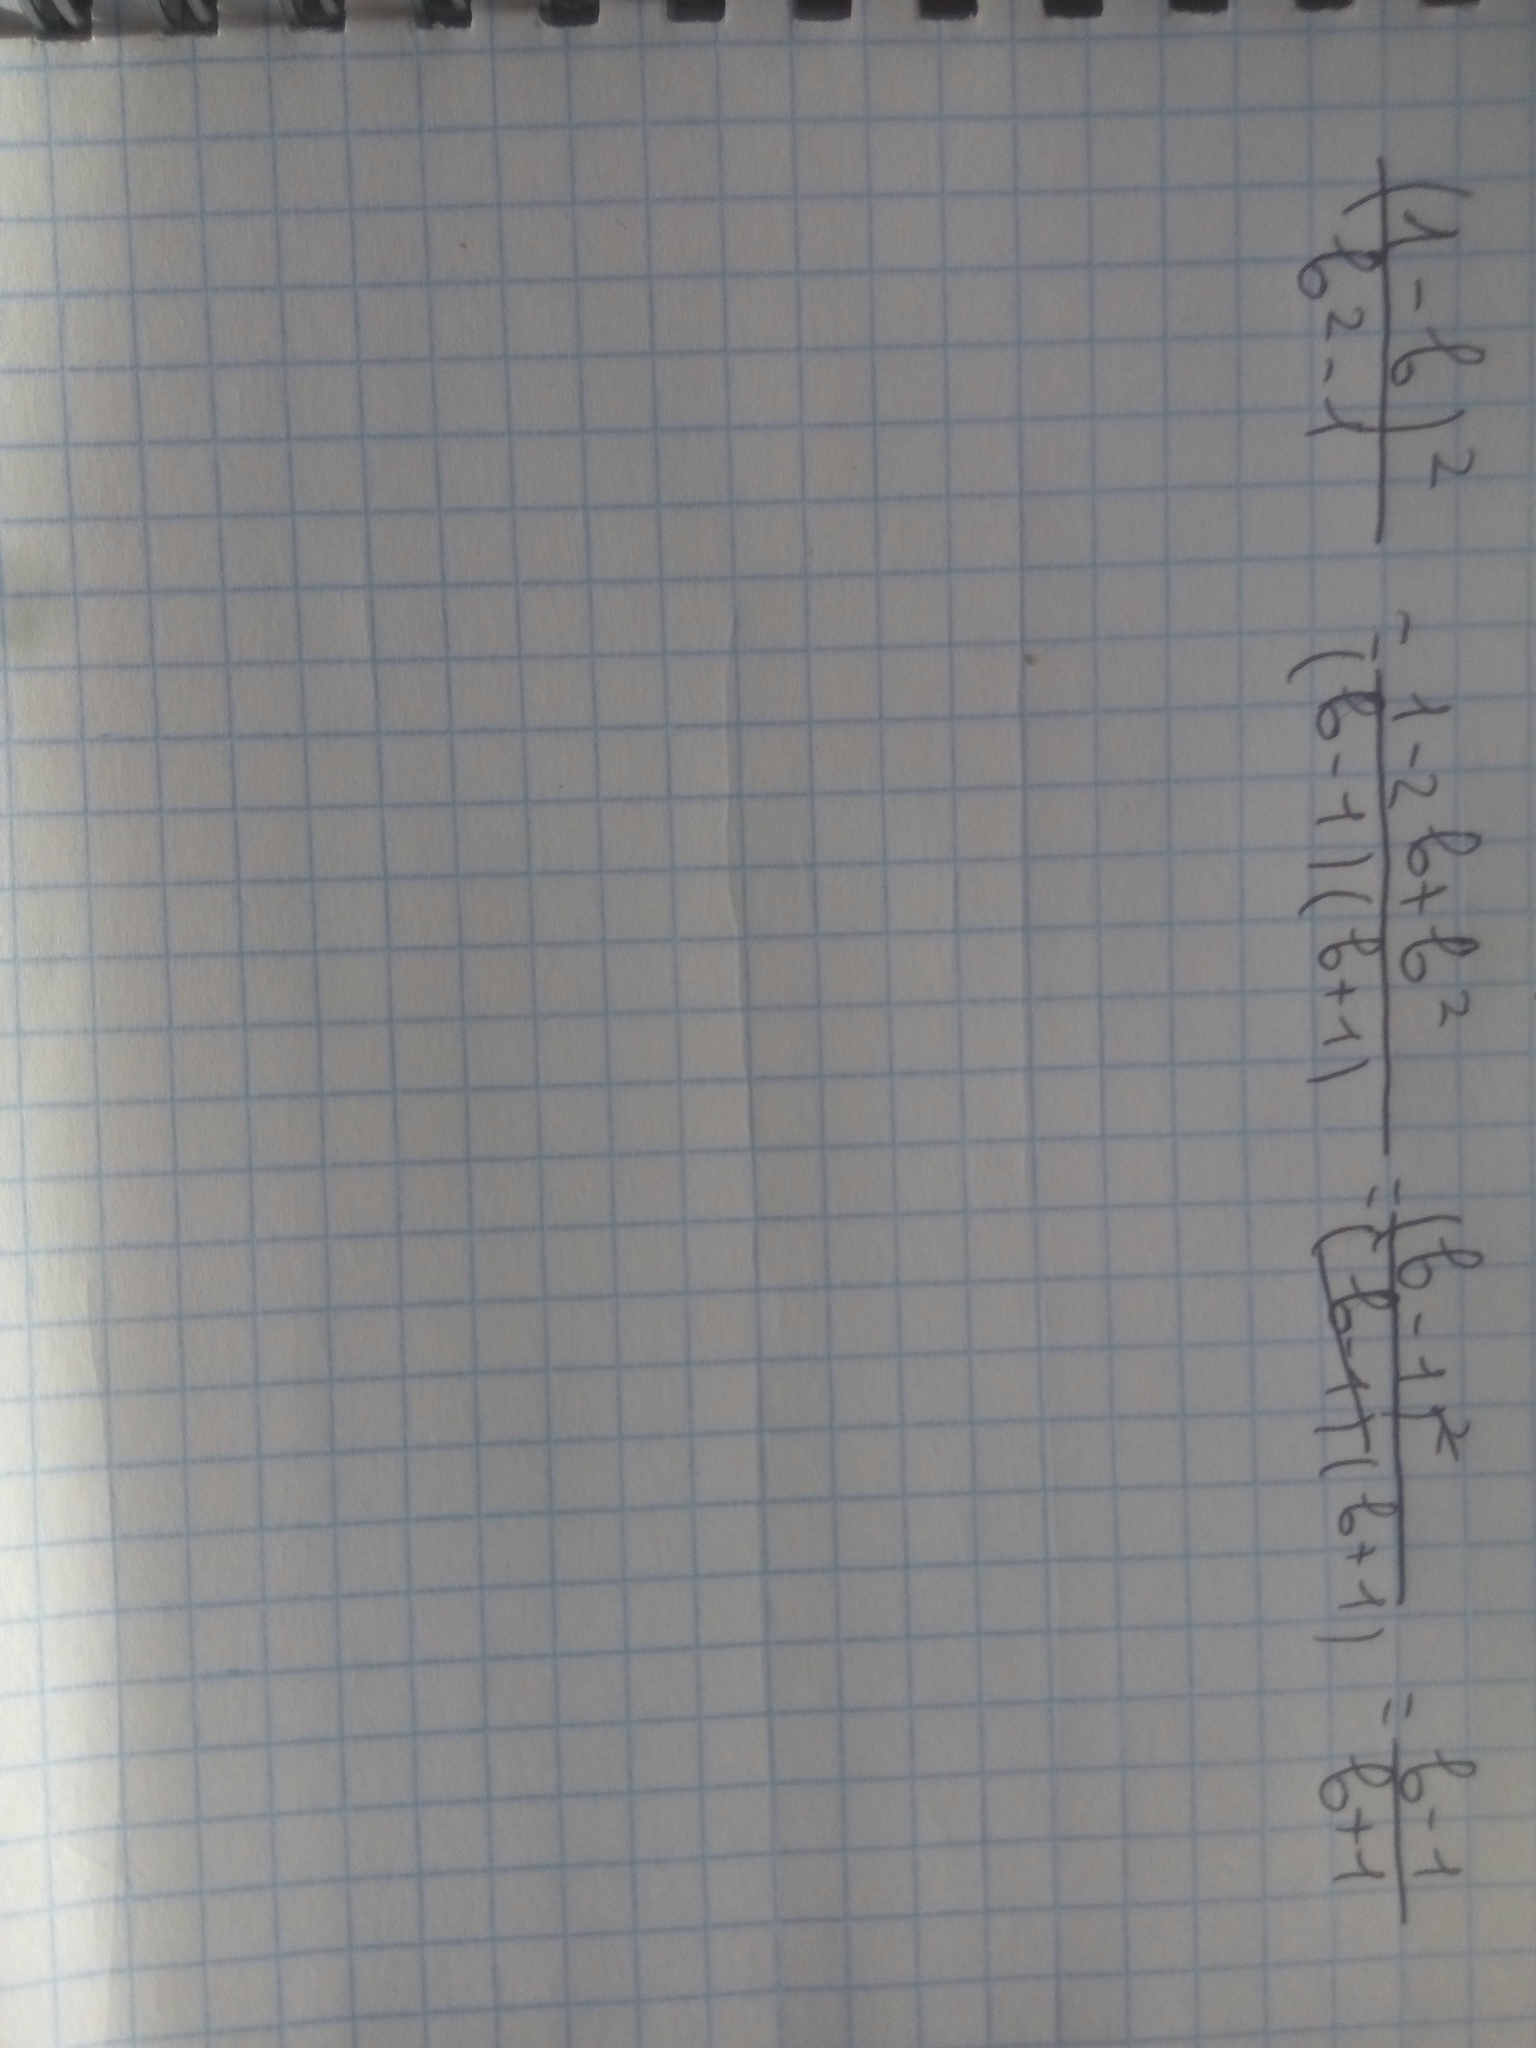 (1-b)²/(b²-1) = (1-2b+b²)/((b-1)(b+1)) = (b-1)²/((b-1)(b+1)) = (b-1)/(b+1)